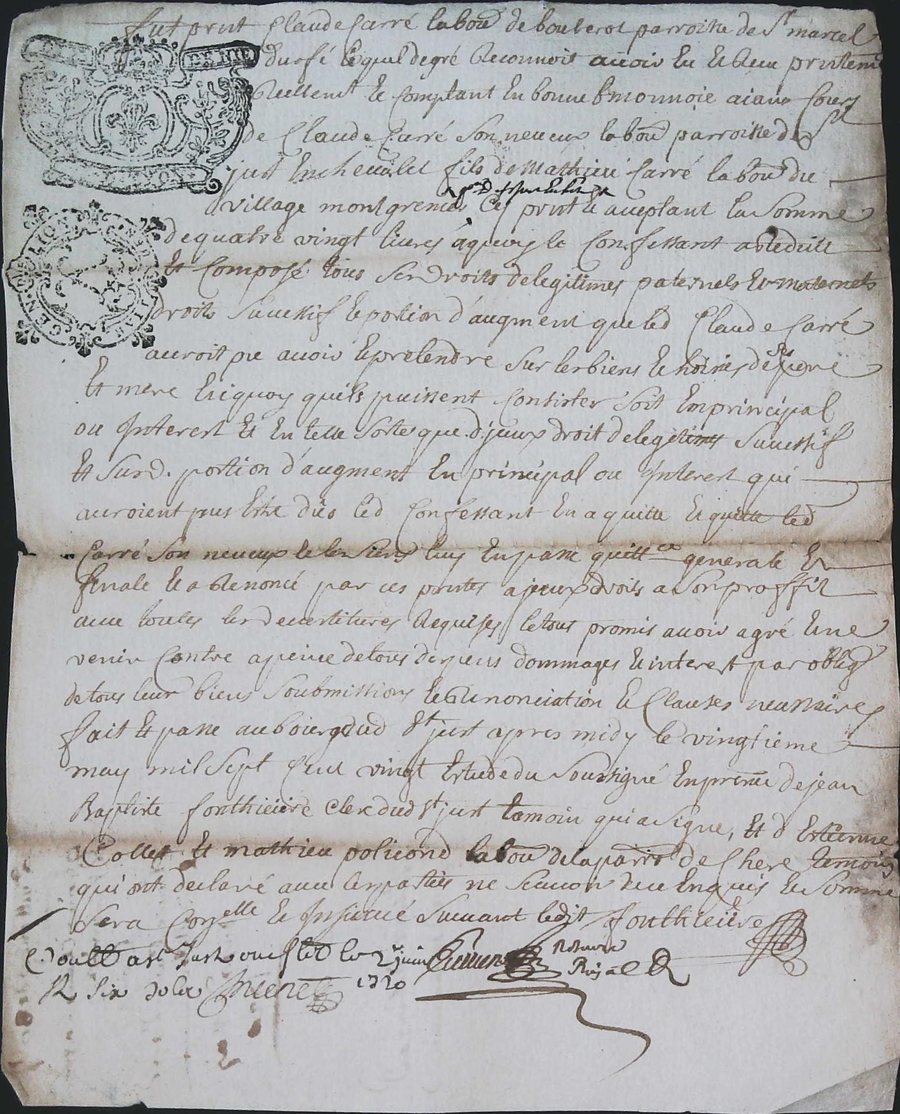 fut prnt Claude Carré labou de bouterot parroisse de St marcel
durfé lequel degré Reconnoit avoir Eu et Receu prntement
Reellemt et Comptant En bonne monnoie aiant Cours
de Claude Carré Son neveux labou parroisse de St
just En chevalet fils de Mathieu Carré labou du
village montgrenier Ce prnt et aceptant la Somme
de quatre vingt livres a quoy le Confessant a reduit
Et Composé tous Ses droits de legitimes paternels Et maternels
droits Successif et portion d'augment que led Claude Carré
auroit pu avoir et pretendre Sur les biens et hoiries de ses pere
Et mere En quoy quils puissent Consister Soit En principal
ou Interest Et En telle Sorte que d'jceux droit de legitimes Successif
Et Surd. portion d'augment En principal ou Interest qui
auroient pus Estre dües led Confessant En a quitté Et quitte led
Carré Son neveux et les Siens luy En passe quittce generale Et
finale Et a Renoncé par ces prntes a jceux droits a Son proffit
avec toutes les devestitures Requises le tous promis avoir agré Et ne
venir Contre a peine de tous despens dommages Et interest par oblig
de tous leur biens Soubmissions Et Renonciation Et Clauses necessaires
fait Et passé au bourg dud St just apres midy le vingtieme
may mil Sept Cent vingt Estude du Soussigné En prence de jean
Baptiste fonthieure Clerc dud St just temoin qui a Signé, Et d'Estienne
Collet Et mathieu policond labou de la parrse de Chere temoins
qui ont declaré avec les parties ne Scavoir de ce Enquis Et Somme
Sera Conelle Et Insinué Suivant ledit fonthieure
Conllé a St Just led le 2e juin Notaire
R Six sols 1720 Royal
GEN. DE LION